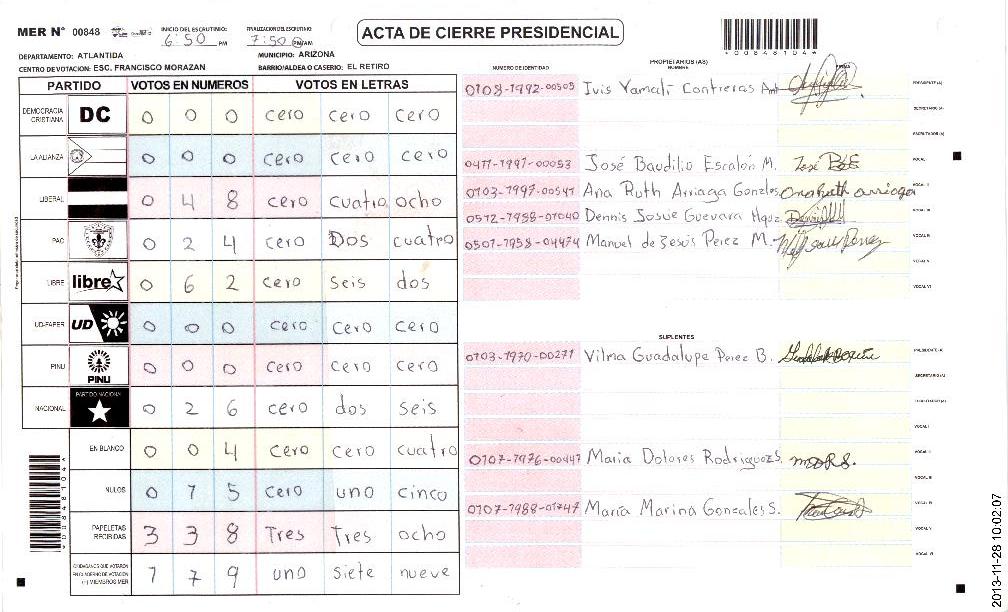 MER Nº 00848
INICIO DEL ESCRUTINIO: 6:50 PM
FINALIZACION DEL ESCRUTINIO 7:50 PM/AM
ACTA DE CIERRE PRESIDENCIAL
*00848104*
DEPARTAMENTO: ATLANTIDA
MUNICIPIO: ARIZONA
CENTRO DE VOTACION: ESC. FRANCISCO MORAZAN
BARRIO/ALDEA O CASERIO: EL RETIRO
PARTIDO VOTOS EN NUMEROS VOTOS EN LETRAS
DEMOCRACIA CRISTIANA DC 0 0 0 cero cero cero
LA ALIANZA 0 0 0 cero cero cero
LIBERAL 0 4 8 cero cuatro ocho
PAC 0 2 4 cero Dos cuatro
LIBRE libre 0 6 2 cero seis dos
UD-FAPER UD 0 0 0 cero cero cero
PINU PINU 0 0 0 cero cero cero
NACIONAL PARTIDO NACIONAL 0 2 6 cero dos seis
EN BLANCO 0 0 4 cero cero cuatro
NULOS 0 1 5 cero uno cinco
PAPELETAS RECIBIDAS 3 3 8 Tres Tres ocho
CIUDADANOS QUE VOTARON EN CUADERNO DE VOTACION (+) MIEMBROS MER 1 7 9 uno siete nueve
*00848104*
PROPIETARIOS (AS)
NUMERO DE IDENTIDAD NOMBRE FIRMA
0108-1992-00505 Ivis Yamali Contreras Ant PRESIDENTE (A)
SECRETARIO (A)
ESCRUTADOR (A)
0411-1997-00053 José Baudilio Escalón M. VOCAL I
0103-1997-00541 Ana Ruth Arriaga Gonzlos Ana Ruth arriaga VOCAL II
0512-1988-01040 Dennis Josue Guevara Hquz. VOCAL III
0501-1958-04474 Manuel de Jesús Perez M. VOCAL IV
VOCAL V
VOCAL VI
SUPLENTES
0103-1970-00271 Vilma Guadalupe Perez B. PRESIDENTE (A)
SECRETARIO (A)
ESCRUTADOR (A)
VOCAL I
0107-1976-00447 Maria Dolores Rodriguez S. M.D.R.S. VOCAL II
VOCAL III
0107-1988-01747 María Marina Gonzales S. VOCAL IV
VOCAL V
VOCAL VI
2013-11-28 10:02:07